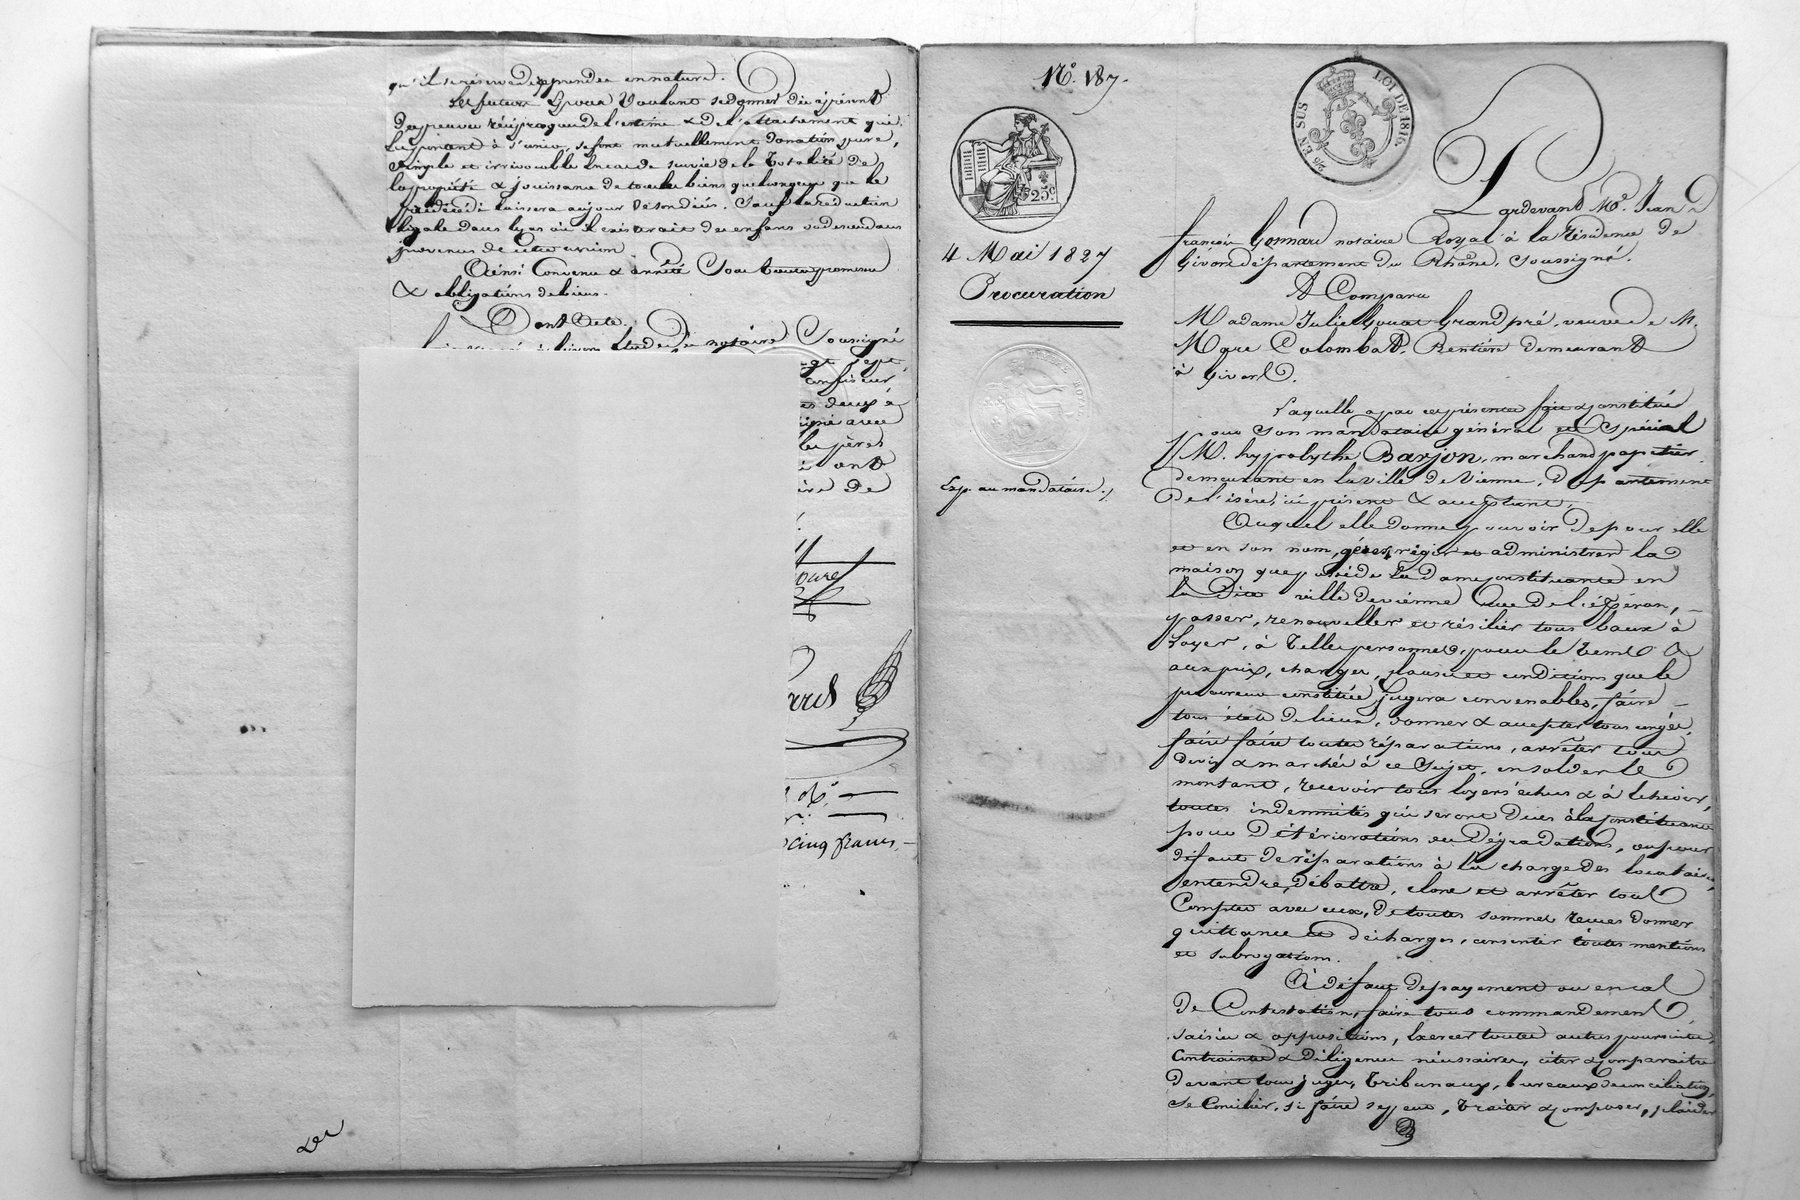 qu'il se réserve de reprendre en nature.
Les futurs époux voulant se donner dès à présent
des preuves réciproques de l'estime & de l'attachement qui
les portent à s'unir, se font mutuellement donation pure,
simple et irrévocable en cas de survie de la totalité de
la propriété & jouissance de tous les biens quelconques que le
prédécédé laissera au jour de son décès. Sauf la réduction
légale dans le cas où il existerait des enfans ou descendans
provenus de cette union.
Ainsi Convenu & arrêté sous toutes promesses
& obligations de biens.
Dont Acte.
notaire Soussigné
sept
deux
avec
les pères
ont
de
cinq francs,
N.° 187.
25 EN SUS
LOI DE 1816.
25c
4 Mai 1827
Procuration
Exp. au mandataire.
Pardevant Me. Jean
françois Gonnard notaire Royal à la résidence de
Givors département du Rhône, soussigné.
A Comparu
Madame Julie Grandpré, veuve de M.
Mque Colombat, Rentière demeurant
à Givors.
Laquelle a par ces présentes fait & constitué
pour son mandataire général et spécial
M. hyppolythe Barjon, marchand papetier
demeurant en la ville de Vienne, département
de l'isère, ici présent & acceptant,
Auquel elle donne pouvoir de pour elle
et en son nom, gérer, régir et administrer la
maison que possède la dame constituante en
la dite ville de vienne Rue de l'éperon,
passer, renouveller et résilier tous baux à
Loyer, à telles personnes, pour le tems &
aux prix, charges, clauses et conditions que le
procureur constitué jugera convenables, faire
tous états de lieux, donner & accepter tous congés,
faire faire toutes réparations, arrêter tous
devis & marchés à ce sujet, en solder le
montant, recevoir tous loyers échus & à échoir,
toutes indemnités qui seront dues à la constituante
pour détériorations ou dégradations, ou pour
défaut de réparations à la charge des locataires,
entendre, débattre, clore et arrêter tout
Compte avec eux, de toutes sommes reçues donner
quittance et décharges, consentir toutes mentions
et subrogations.
A défaut de payement ou en cas
de Contestation, faire tous commandemens
saisies & oppositions, exercer toutes autres poursuites,
contraintes & diligences nécessaires, citer & comparaitre
devant tous juges, tribunaux, bureaux de conciliation,
se concilier, si faire se peut, traiter & composer, plaider